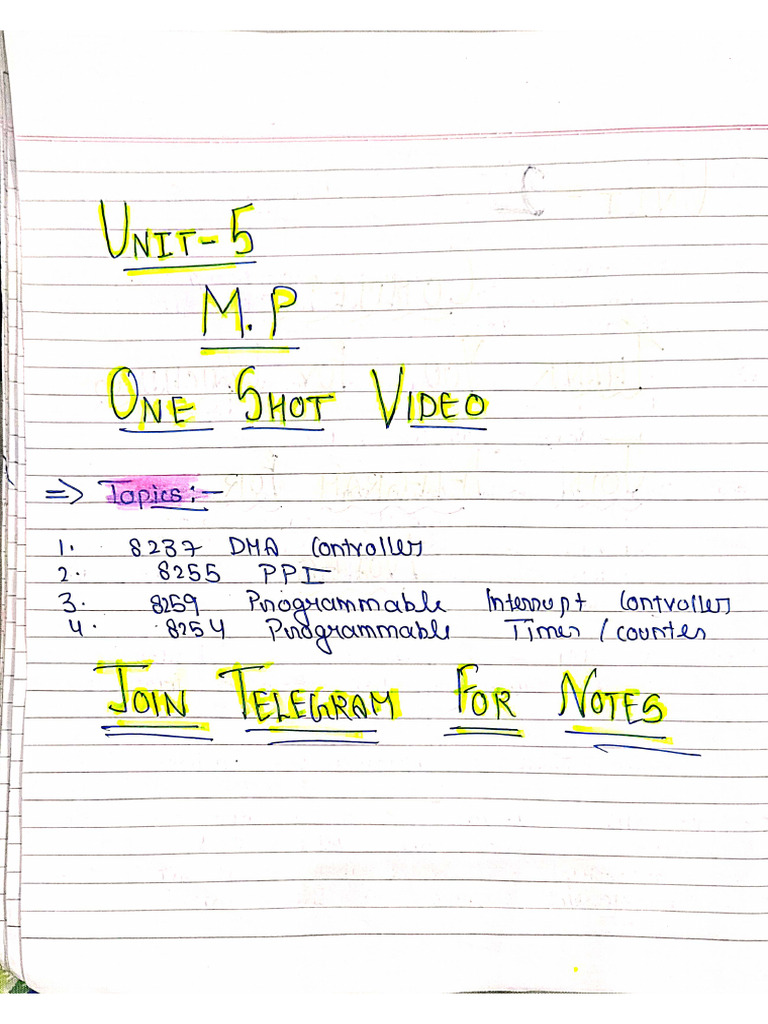 UNIT-5
M.P
ONE SHOT VIDEO
=> Topics:-
1. 8237 DMA Controller
2. 8255 PPI
3. 8259 Programmable Interrupt Controller
4. 8254 Programmable Timer / counter
JOIN TELEGRAM FOR NOTES